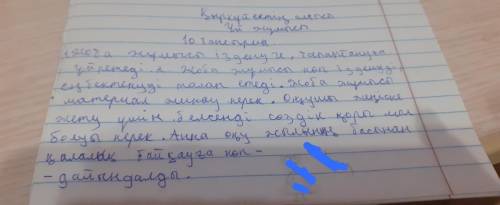 Бір қыркүйектің
Үй жұмысы
10 тапсырма
Жоба жұмысы ізденуге, талаптануға
үйретеді. Жоба жұмысы көп ізденуді
еңбектенуді талап етеді. Жоба жұмысы
материал жинау керек. Оқушы
жету үшін белсенді сөздік қоры мол
болуы керек. Анна оқу жылының басынан
қалалық байқауға көп -
- дайындалды.